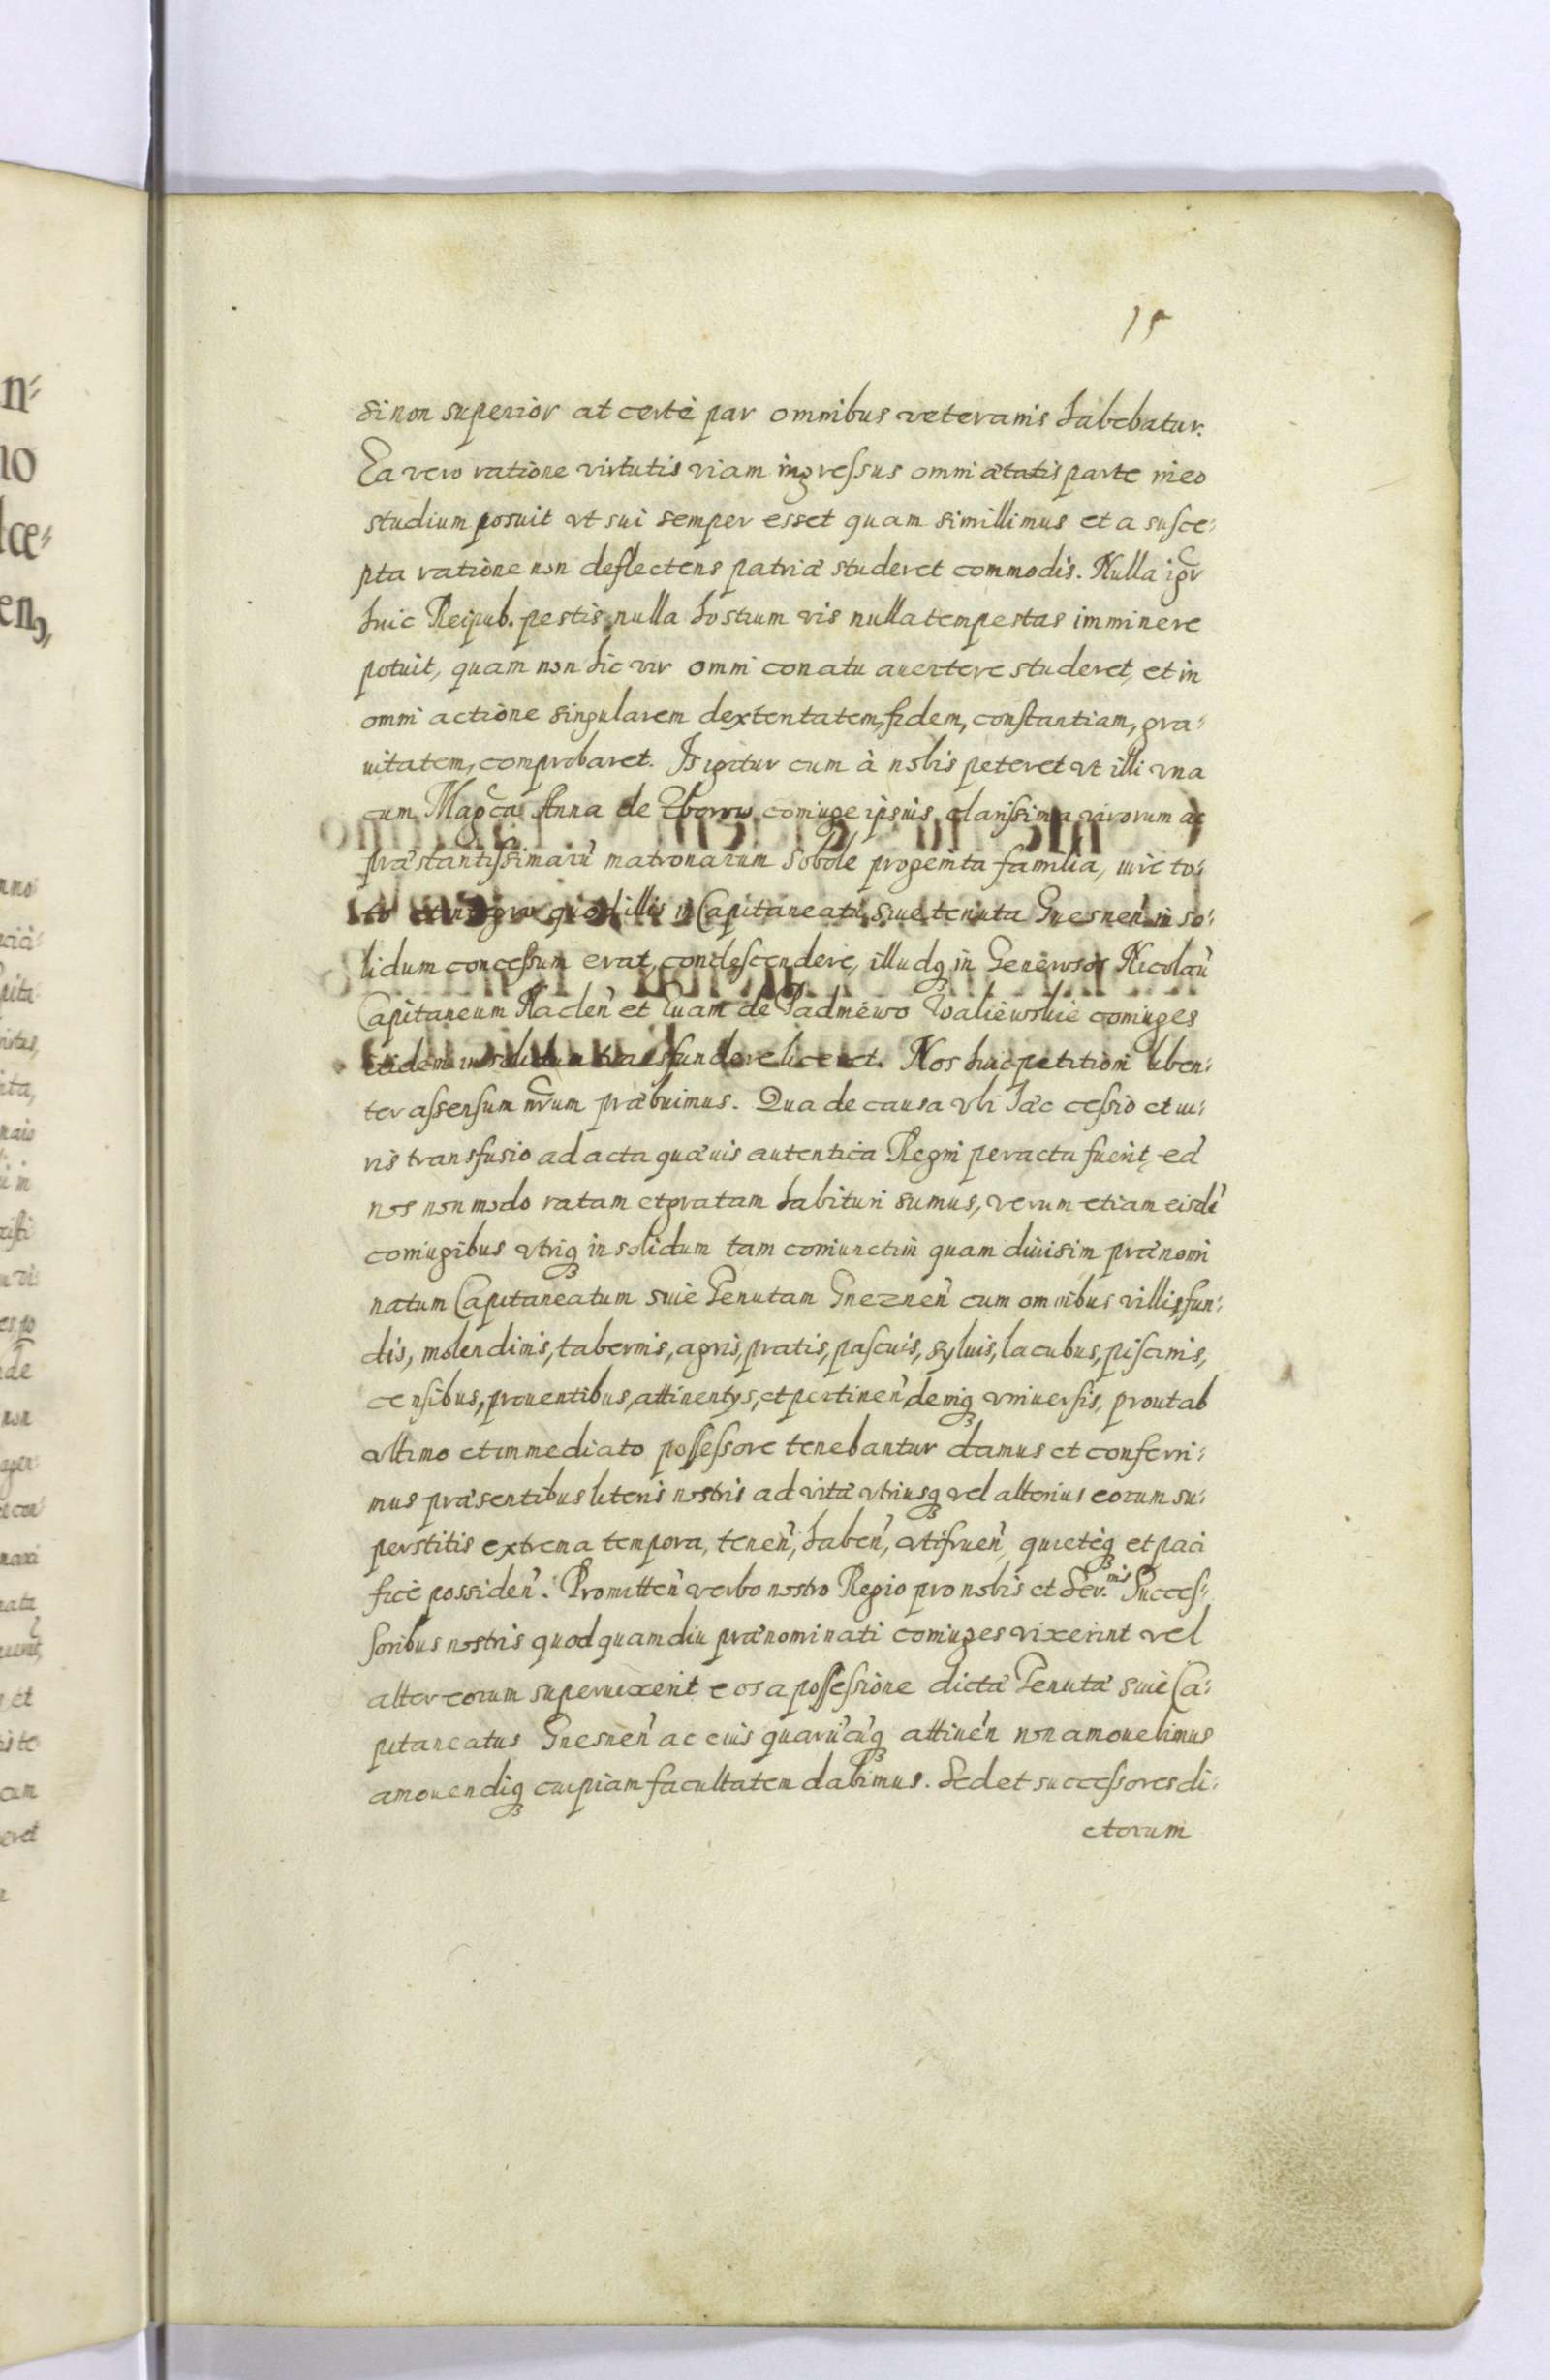 15
si non superior at certè par omnibus veteranis habebatur.
Ea vero ratione virtutis viam ingressus omni ætatis parte in eo
studium posuit vt sui semper esset quam simillimus et a susce-
pta ratione non deflectens patriæ studeret commodis. Nulla igr
huic Reipub. pestis, nulla hostium vis nulla tempestas imminere
potuit, quam non hic vir omni conatu auertere studeret, et in
omni actione singularem dexteritatem, fidem, constantiam, gra-
uitatem, comprobaret. Is igitur cum à nobis peteret vt illi vna
cum Magca Anna de Zborow coniuge ipsius clarissima virorum ac
præstantissimarũ matronarum sobole progenita familia, iure to-
to et integro quod illis in Capitaneatu siue tenuta Gnesneñ in so-
lidum concessum erat, condescendere, illudq3 in Generosos Nicolaũ
Capitaneum Nacleñ et Euam de coniuges
itidem in solidum transfundere liceret. Nos huic petitioni liben-
ter assensum nrum præbuimus. Qua de causa vbi hæc cessio et iu-
ris transfusio ad acta quæuis autentica Regni peracta fuerit, eã
nos non modo ratam et gratam habituri sumus, verum etiam eisdẽ
coniugibus vtriq3 in solidum tam coniunctim quam diuisim prænomi
natum Capitaneatum siue Tenutam Gnezneñ cum omnibus villis, fun-
dis, molendinis, tabernis, agris, pratis, pascuis, syluis, lacubus, piscinis,
censibus, prouentibus, attinentijs, et pertineñ deniq3 vniuersis, prout ab
vltimo et immediato possessore tenebantur damus et conferi-
mus præsentibus literis nostris ad vitæ vtriusq3 vel alterius eorum su-
perstitis extrema tempora, teneñ, habeñ, vtifrueñ, quietèq3 et paci
ficè possideñ. Promitteñ verbo nostro Regio pro nobis et Ser.mis Succes-
soribus nostris quod quamdiu prænominati coniuges vixerint vel
alter eorum superuixerit eos a possessione dictæ Tenutæ siuè Ca-
pitaneatus Gnesneñ ac eius quarũcũq3 attineñ non amouebimus
amouendiq3 cuipiam facultatem dabimus. Sed et successores di-
ctorum